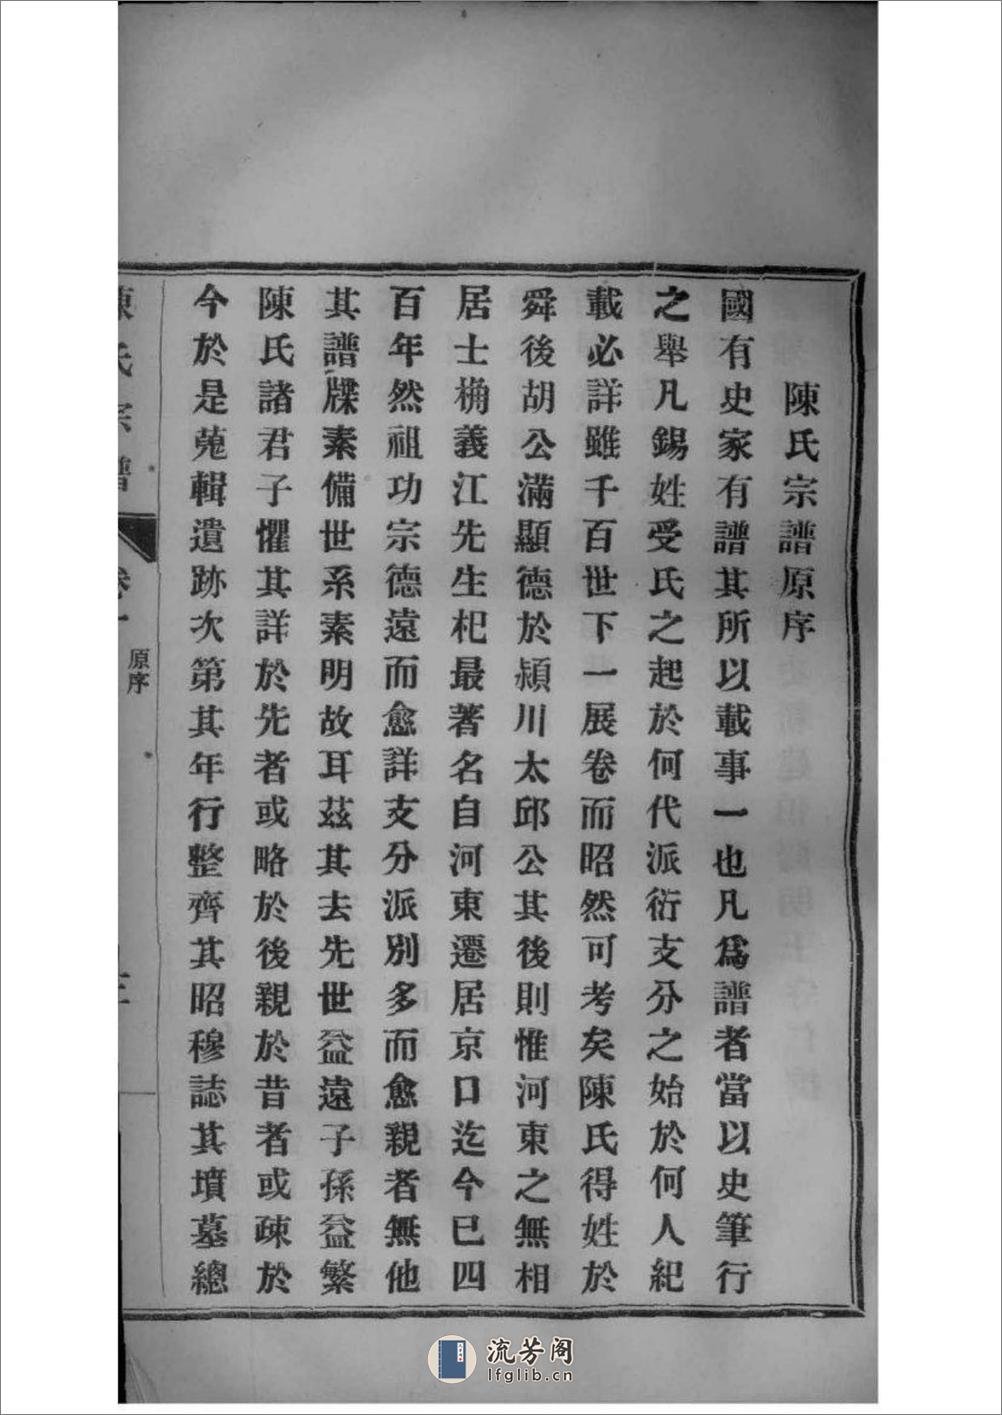 陳氏宗譜原序
國有史家有譜其所以載事一也凡爲譜者當以史筆行
之舉凡錫姓受氏之起於何代派衍支分之始於何人紀
載必詳雖千百世下一展卷而昭然可考矣陳氏得姓於
舜後胡公滿顯德於潁川太邱公其後則惟河東之無相
居士桷義江先生杞最著名自河東遷居京口迄今已四
百年然祖功宗德遠而愈詳支分派別多而愈親者無他
其譜牒素備世系素明故耳茲其去先世益遠子孫益繁
陳氏諸君子懼其詳於先者或略於後親於昔者或疎於
今於是蒐輯遺跡次第其年行整齊其昭穆誌其墳墓總
陳氏宗譜
卷一
原序
三
流芳阁
lfglib.cn